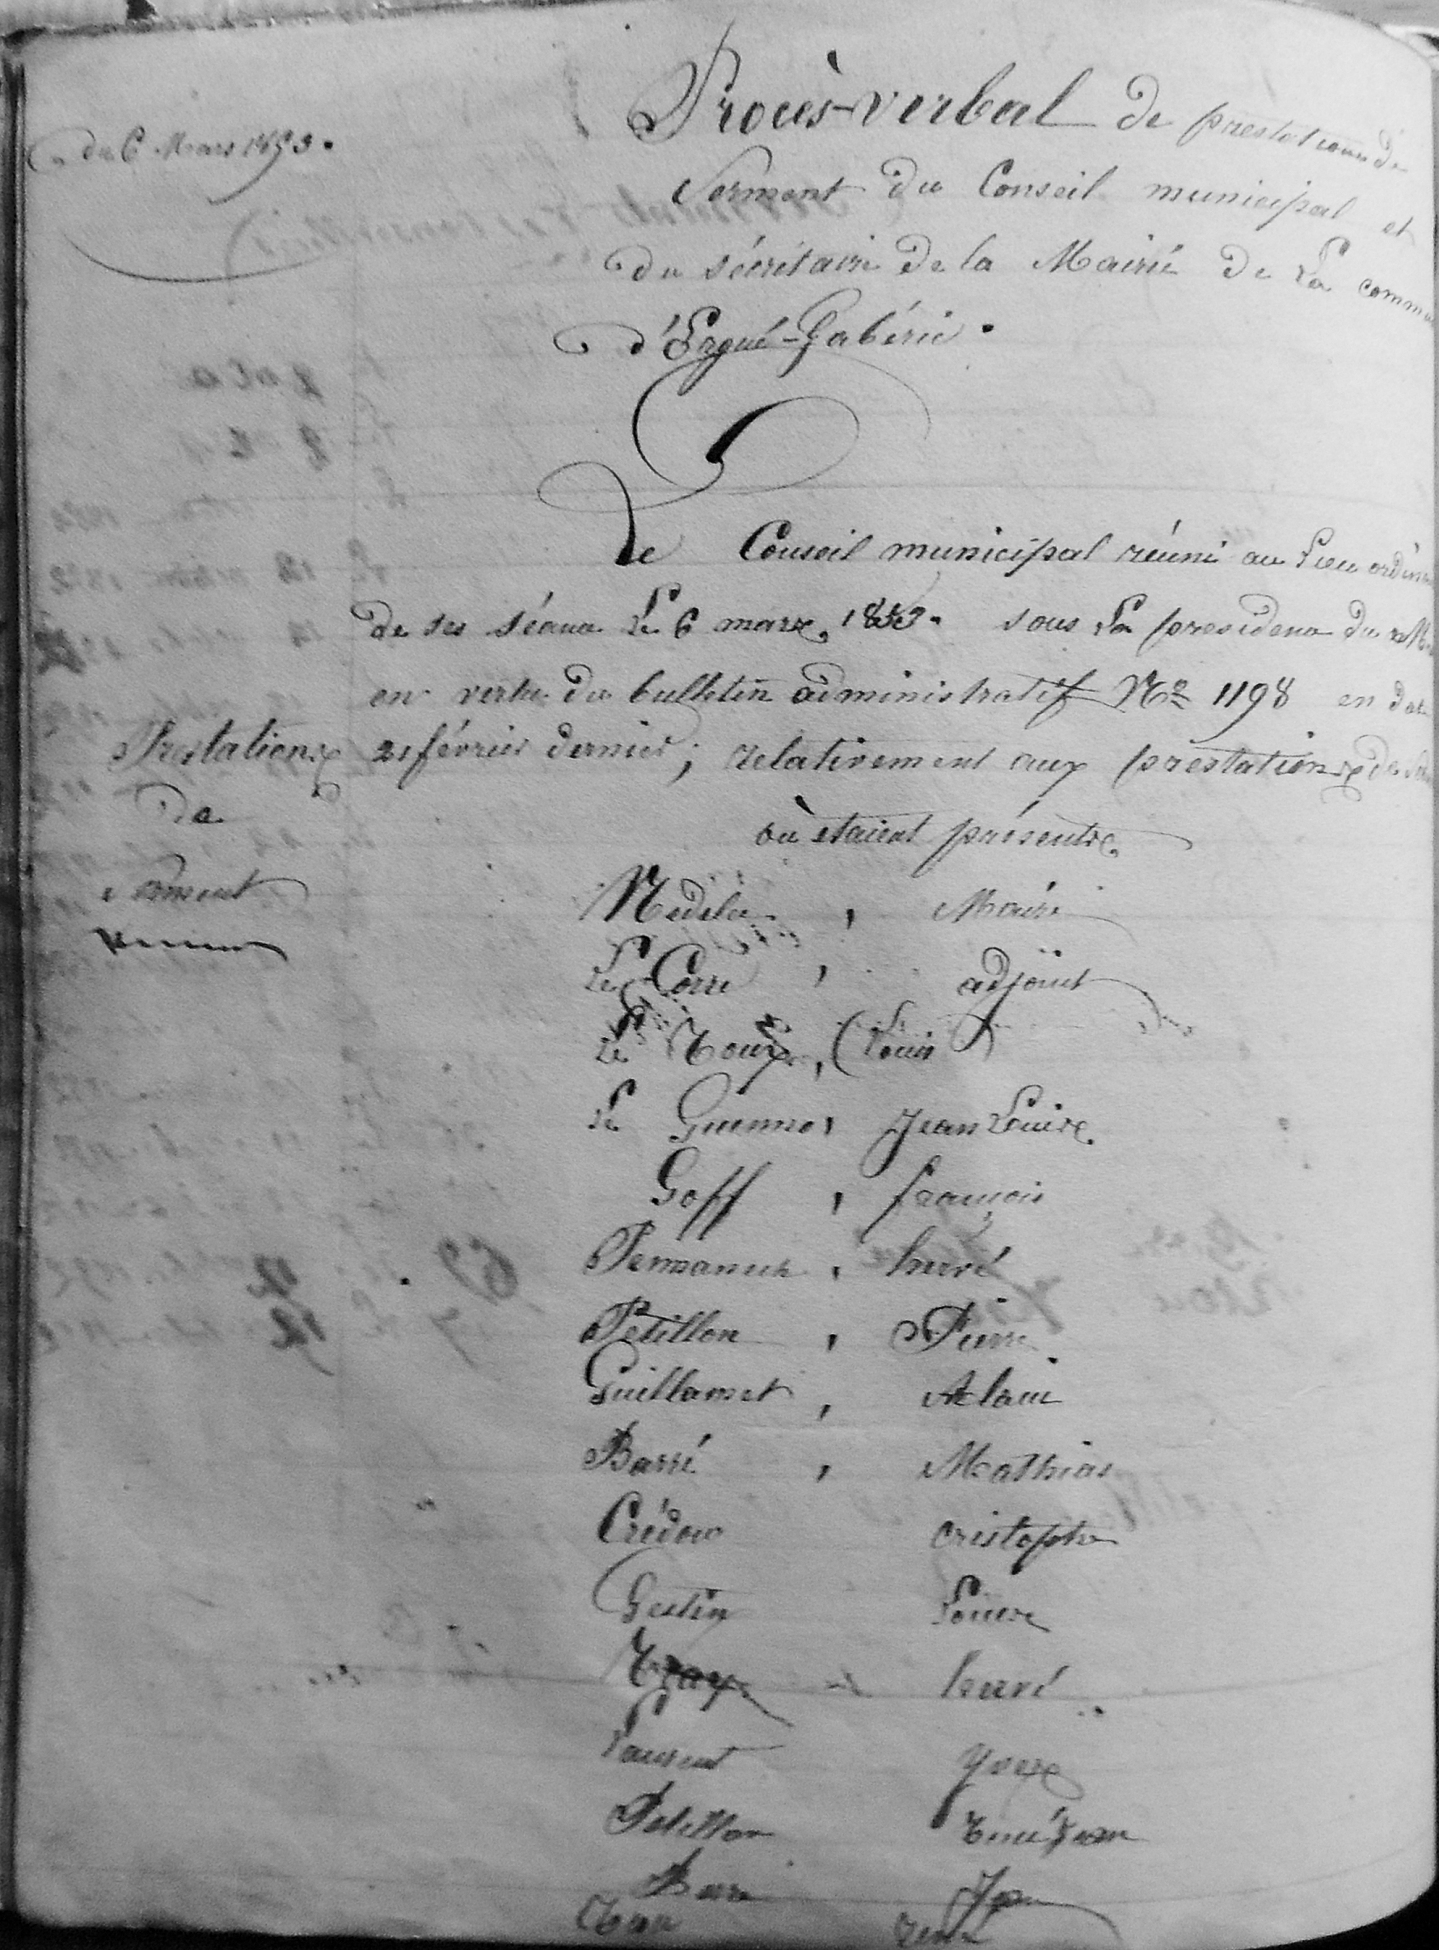 du 6 Mars 1853.
Procès-verbal de prestations de
Serment du Conseil municipal et
du sécrétaire de la Mairie de La commu
d'Ergué-Gabéric.
Le Conseil municipal réuni au Lieu ordin
de ses séance Le 6 mars, 1853. sous La presidence du M
en vertu du bulletin administratif No 1198 en date
21 février dernier; relativement aux prestations de
Prestations
de
serment
où etaient présents
Nédélec, Maire
Le Corre, adjoint
Le (Louis)
Le Guenno, Jean Louis
Goff, françois
hervé
Pétillon, Pierre
Guillamet, Alain
Barré, Mathias
Crédou cristophe
Gestin Louis
hervé
Laurent Yves
Petillon René Jean
Barre
René